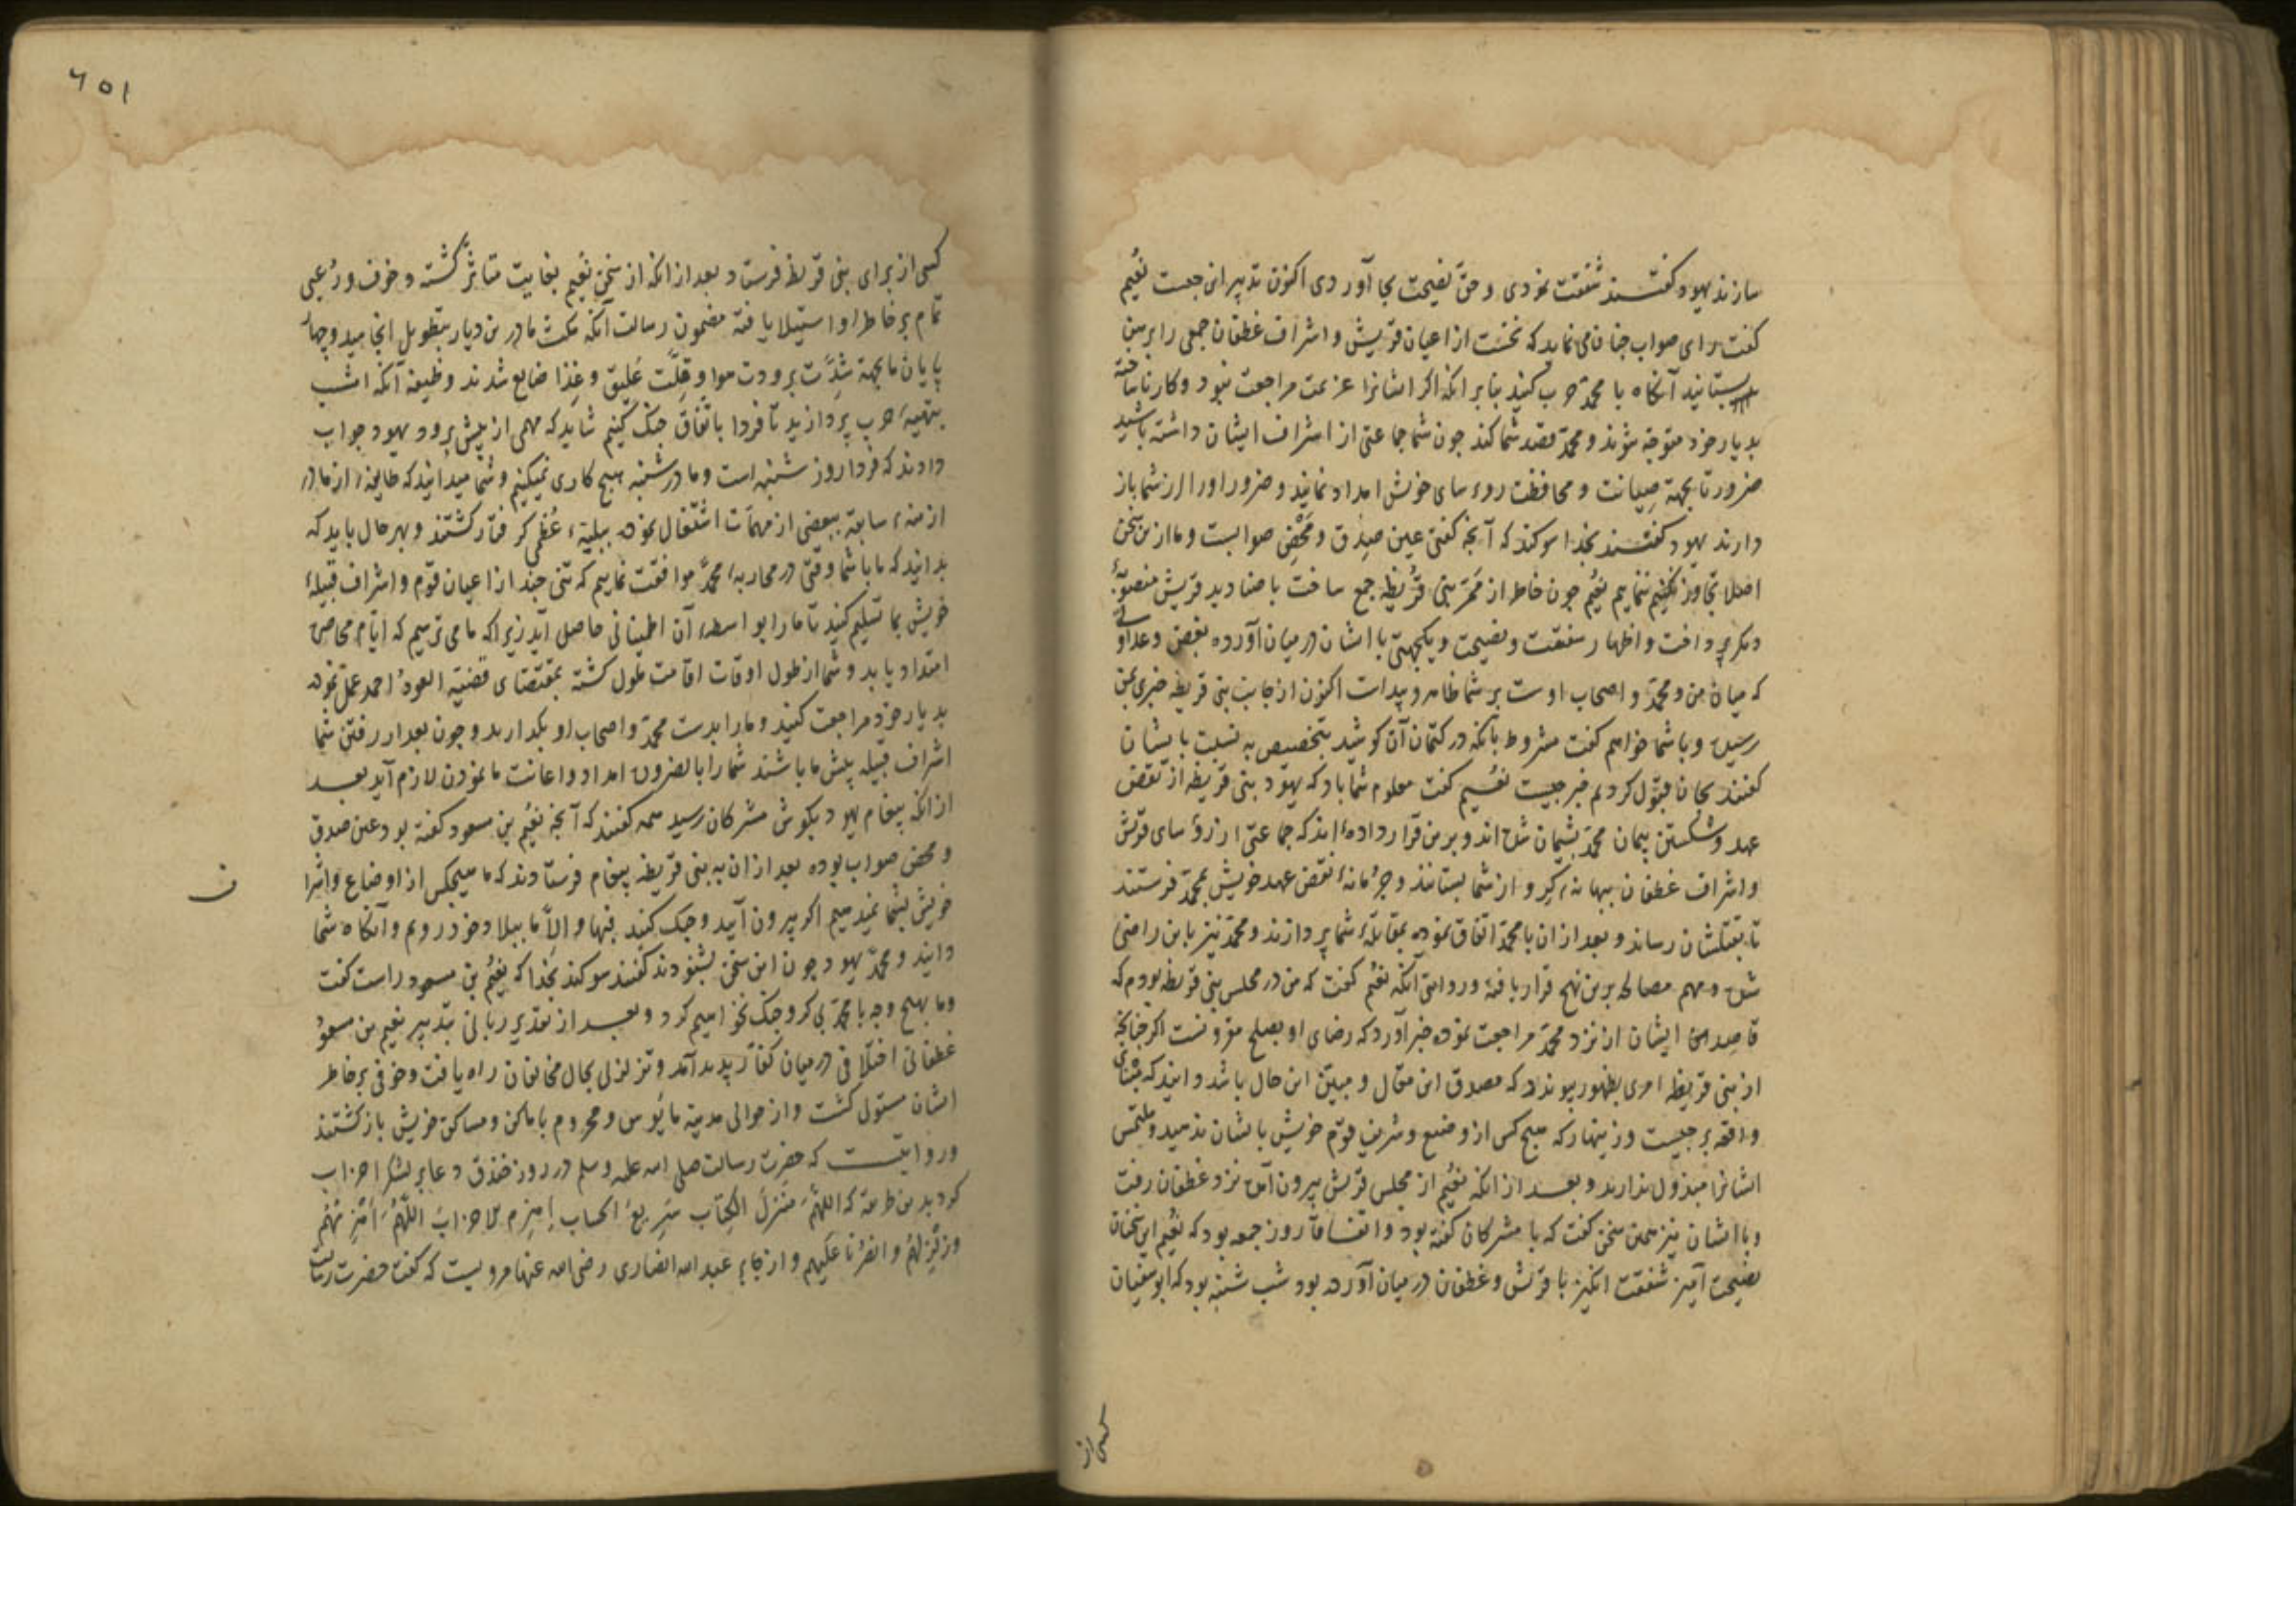 سازند یهود گفتند شفقت نمودی و حق نصیحت بجای آوردی اکنون تدبیر این چیست نعیم
گفت رای صواب چنان می نماید که نخست از اعیان قریش و اشراف غطفان جمعی را برهن
بستانید آنگاه با محمد حرب کنید بنابر آنکه اگر ایشانرا عزیمت مراجعت شود و کار ناساخته
بدیار خود متوجه شوند و محمد قصد شما کند چون شما جماعتی از اشراف ایشان داشته باشید
ضرورتا بجهة صیانت و محافظت روءسای خویش امداد نمایند و ضرر او را از شما باز
دارند یهود گفتند بخدا سوکند که آنچه گفتی عین صدق و محض صوابست و ما ازین سخن
اصلا تجاوز نکنیم ننماییم نعیم چون خاطر از ممر بنی قریظه جمع ساخت با صنادید قریش منصوبهٔ
دیگر پرداخت و اظهار شفقت و نصیحت و یکجهتی با ایشان در میان آورده بغض و عداوتی
که میان من و محمد و اصحاب اوست بر شما ظاهر و پیداست اکنون از جانب بنی قریظه خبری بمن
رسیده و با شما خواهم گفت مشروط بآنکه در کتمان آن کوشید بتخصیص به نسبت بایشان
گفتند بجان قبول کردیم خبر چیست نعیم گفت معلوم شما باد که یهود بنی قریظه از نقض
عهد و شکستن پیمان محمد پشیمان شده اند و برین قرار داده‌اند که جماعتی از رؤسای قریش
و اشراف غطفان ببهانهٔ گرو از شما بستانند و جرمانهٔ نقض عهد خویش بمحمد فرستند
تا بقتلشان رساند و بعد از ان با محمد اتفاق نموده بمقابلهٔ شما پردازند و محمد نیز باین راضی
شده و مهم مصالحه برین نهج قرار یافته و روایتی آنکه نعیم گفت که من در مجلس بنی قریظه بودم که
قاصد ایشان از نزد محمد مراجعت نموده خبر آورد که رضای او بصلح مقرونست اکر چنانچه
از بنی قریظه امری بظهور پیوندد که مصدق این مقال و مبین این حال باشد دانید که مبنای
واقعه بر چیست و زینهار که هیچ کس از وضیع و شریف قوم خویش بایشان ندهید و ملتمس
ایشانرا مبذول ندارید و بعد از آنکه نعیم از مجلس قریش بیرون آمد نزد غطفان رفت
و با ایشان نیز همین سخن گفت که با مشرکان گفته بود و اتفاقا روز جمعه بود که نعیم این سخنان
نصیحت آمیز شفقت انگیز با قریش و غطفان در میان آورده بود شب شنبه بود که ابوسفیان
کسی از
٦٥١
کسی از برای بنی قریظه فرستاد بعد از آنکه از سخن نعیم بغایت متاثر گشته و خوف و رعبی
تمام بر خاطر او استیلا یافته مضمون رسالت آنکه مکث ما درین دیار بتطویل انجامید و چهار
پایان ما بجهة شدت برودت هوا و قلت علیق و غذا ضایع شدند وظیفه آنکه امشب
بتهیهٔ حرب پردازید تا فردا باتفاق جنک کنیم شاید که مهمی از پیش برود یهود جواب
دادند که فردا روز شنبه است و ما در شنبه هیچ کاری نمیکنیم و شما میدانید که طایفهٔ از ما در
ازمنهٔ سابقه ببعضی از مهمات اشتغال نموده ببلیهٔ عظمی گرفتار گشتند و بهر حال باید که
بدانید که ما با شما وقتی در محاربهٔ محمد موافقت نماییم که تنی چند از اعیان قوم و اشراف قبیلهٔ
خویش بما تسلیم کنید تا ما را بواسطهٔ آن اطمینانی حاصل آید زیرا که ما می ترسیم که ایام محاصره
امتداد یابد و شما از طول اوقات اقامت ملول گشته بمقتضای قضیه العود احمد عمل نموده
بدیار خود مراجعت کنید و ما را بدست محمد و اصحاب او بگذارید و چون بعد از رفتن شما
اشراف قبیله پیش ما باشند شما را بالضروره امداد و اعانت ما نمودن لازم آید بعد
از آنکه پیغام یهود بگوش مشرکان رسید همه گفتند که آنچه نعیم بن مسعود گفته بود عین صدق
و محض صواب بوده بعد از ان به بنی قریظه پیغام فرستادند که ما هیچکس از اوضاع و اشرا
ف
خویش بشما نمیدهیم اکر بیرون آیید و جنک کنید فبها و الا ما ببلاد خود رویم و آنگاه شما
دانید و محمد یهود چون این سخن بشنودند گفتند سوکند بخدا که نعیم بن مسعود راست گفت
و ما بهیچ وجه با محمد بی گرو جنک نخواهیم کرد و بعد از تقدیر ربانی بتدبیر نعیم بن مسعود
غطفانی اختلافی در میان کفار پدید آمد و تزلزلی بحال مخالفان راه یافت و خوفی بر خاطر
ایشان مستولی گشت و از حوالی مدینه مایوس و محروم باماکن و مساکن خویش باز گشتند
و روایتست که حضرت رسالت صلی الله علیه وسلم در روز خندق دعا بر لشکر احزاب
کرد بدین طریقه که اللهم منزل الکتاب سریع الحساب اهزم الاحزاب اللهم اهزمهم
و زلزلهم و انصرنا علیهم و از جابر عبد الله انصاری رضی الله عنهما مرویست که گفت حضرت رسالت